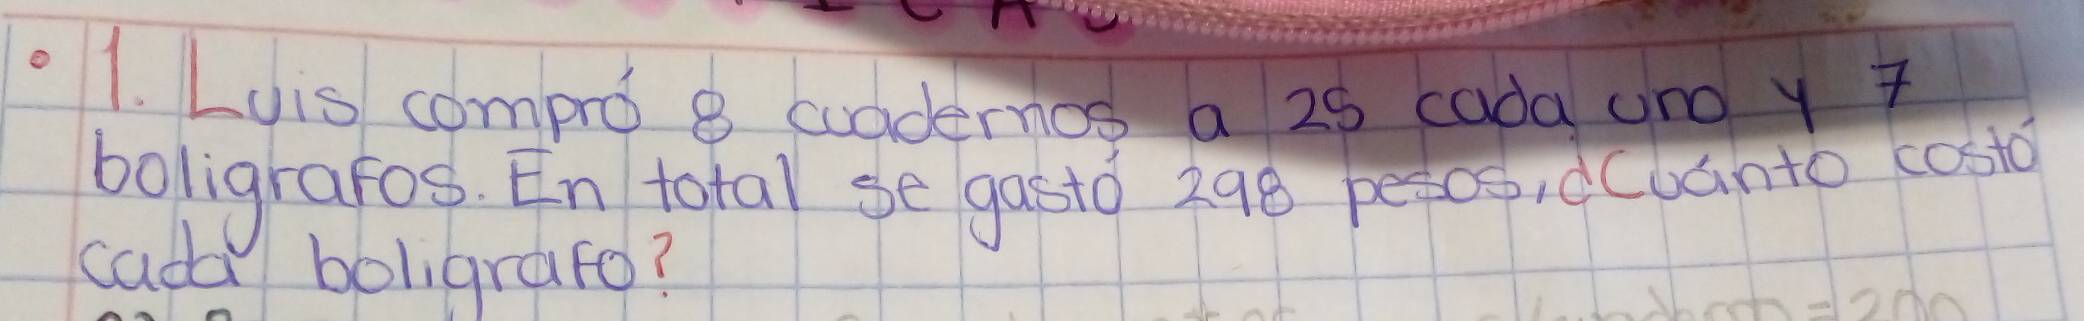 1. Luis compró 8 cuadernos a 25 cada uno y 7
boligrafos. En total se gastó 298 pesos, ¿Cuánto costó
cada boligrafo?
=200